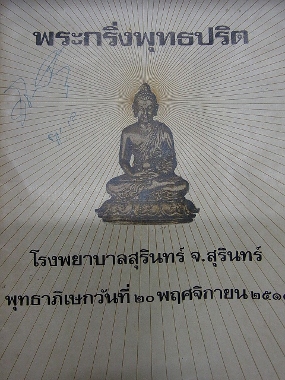 พระกริ่งพุทธปริต
โรงพยาบาลสุรินทร์ จ.สุรินทร์
พุทธาภิเษกวันที่ ๒๐ พฤศจิกายน